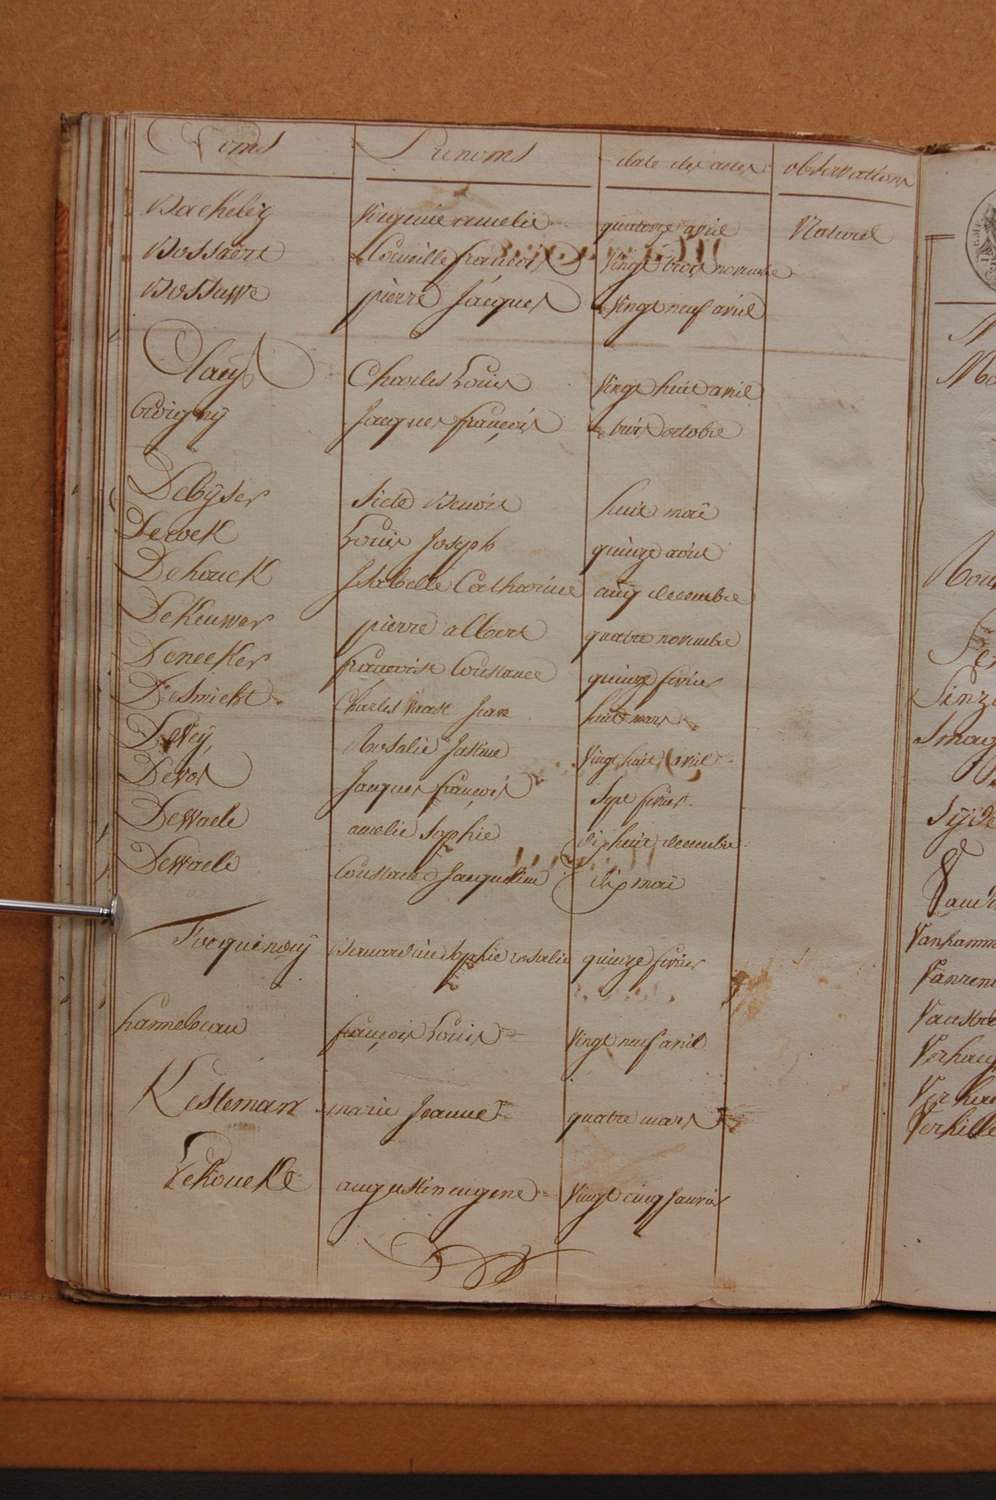 Noms Prenoms date des actes observations
Backeleij Virginie amelie quatorze avril Naturel
Bossaert Corneille francois vingt trois novembre
Bossuwe pierre Jacques vingt neuf avril
Claeys Charles Louis vingt huit avril
Jacques françois trois octobre
Debÿser Benoit huit mai
Derock Louis Joseph quinze avril
Dehouck Isabelle Catharine cinq decembre
DeKeuwer pierre albert quatre novembre
Deneeker francoise Constance quinze fevrier
DeSmicht Charles Jean huit mars
Devey Rosalie Justine vingt huit avril
Devos Jacques françois sept fevrier
DeWaele amelie Sophie dix huit decembre
DeWaele Constance Jacqueline dix mai
Focquenoeÿ Bernardine Sophie rosalie quinze fevrier
hannebeau françois Louis vingt neuf avril
Kesteman marie Jeanne quatre mars
LehoucKe augustin eugene vingt cinq janvier
N
Ma
Vanhamm
Vanrene
Verhaeg
Verhille